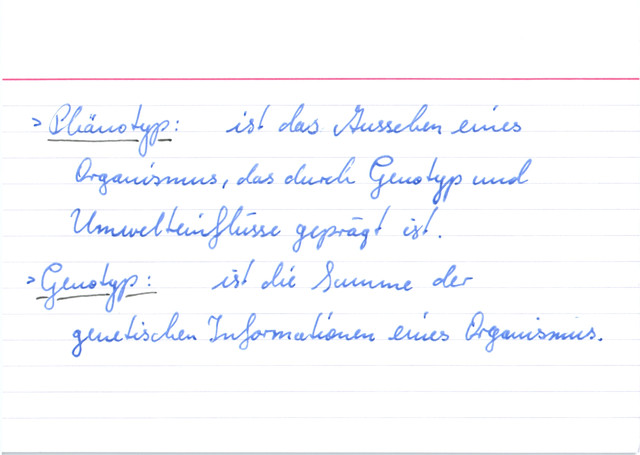 > Phänotyp: ist das Aussehen eines
Organismus, das durch Genotyp und
Umwelteinflüsse geprägt ist.
> Genotyp: ist die Summe der
genetischen Informationen eines Organismus.